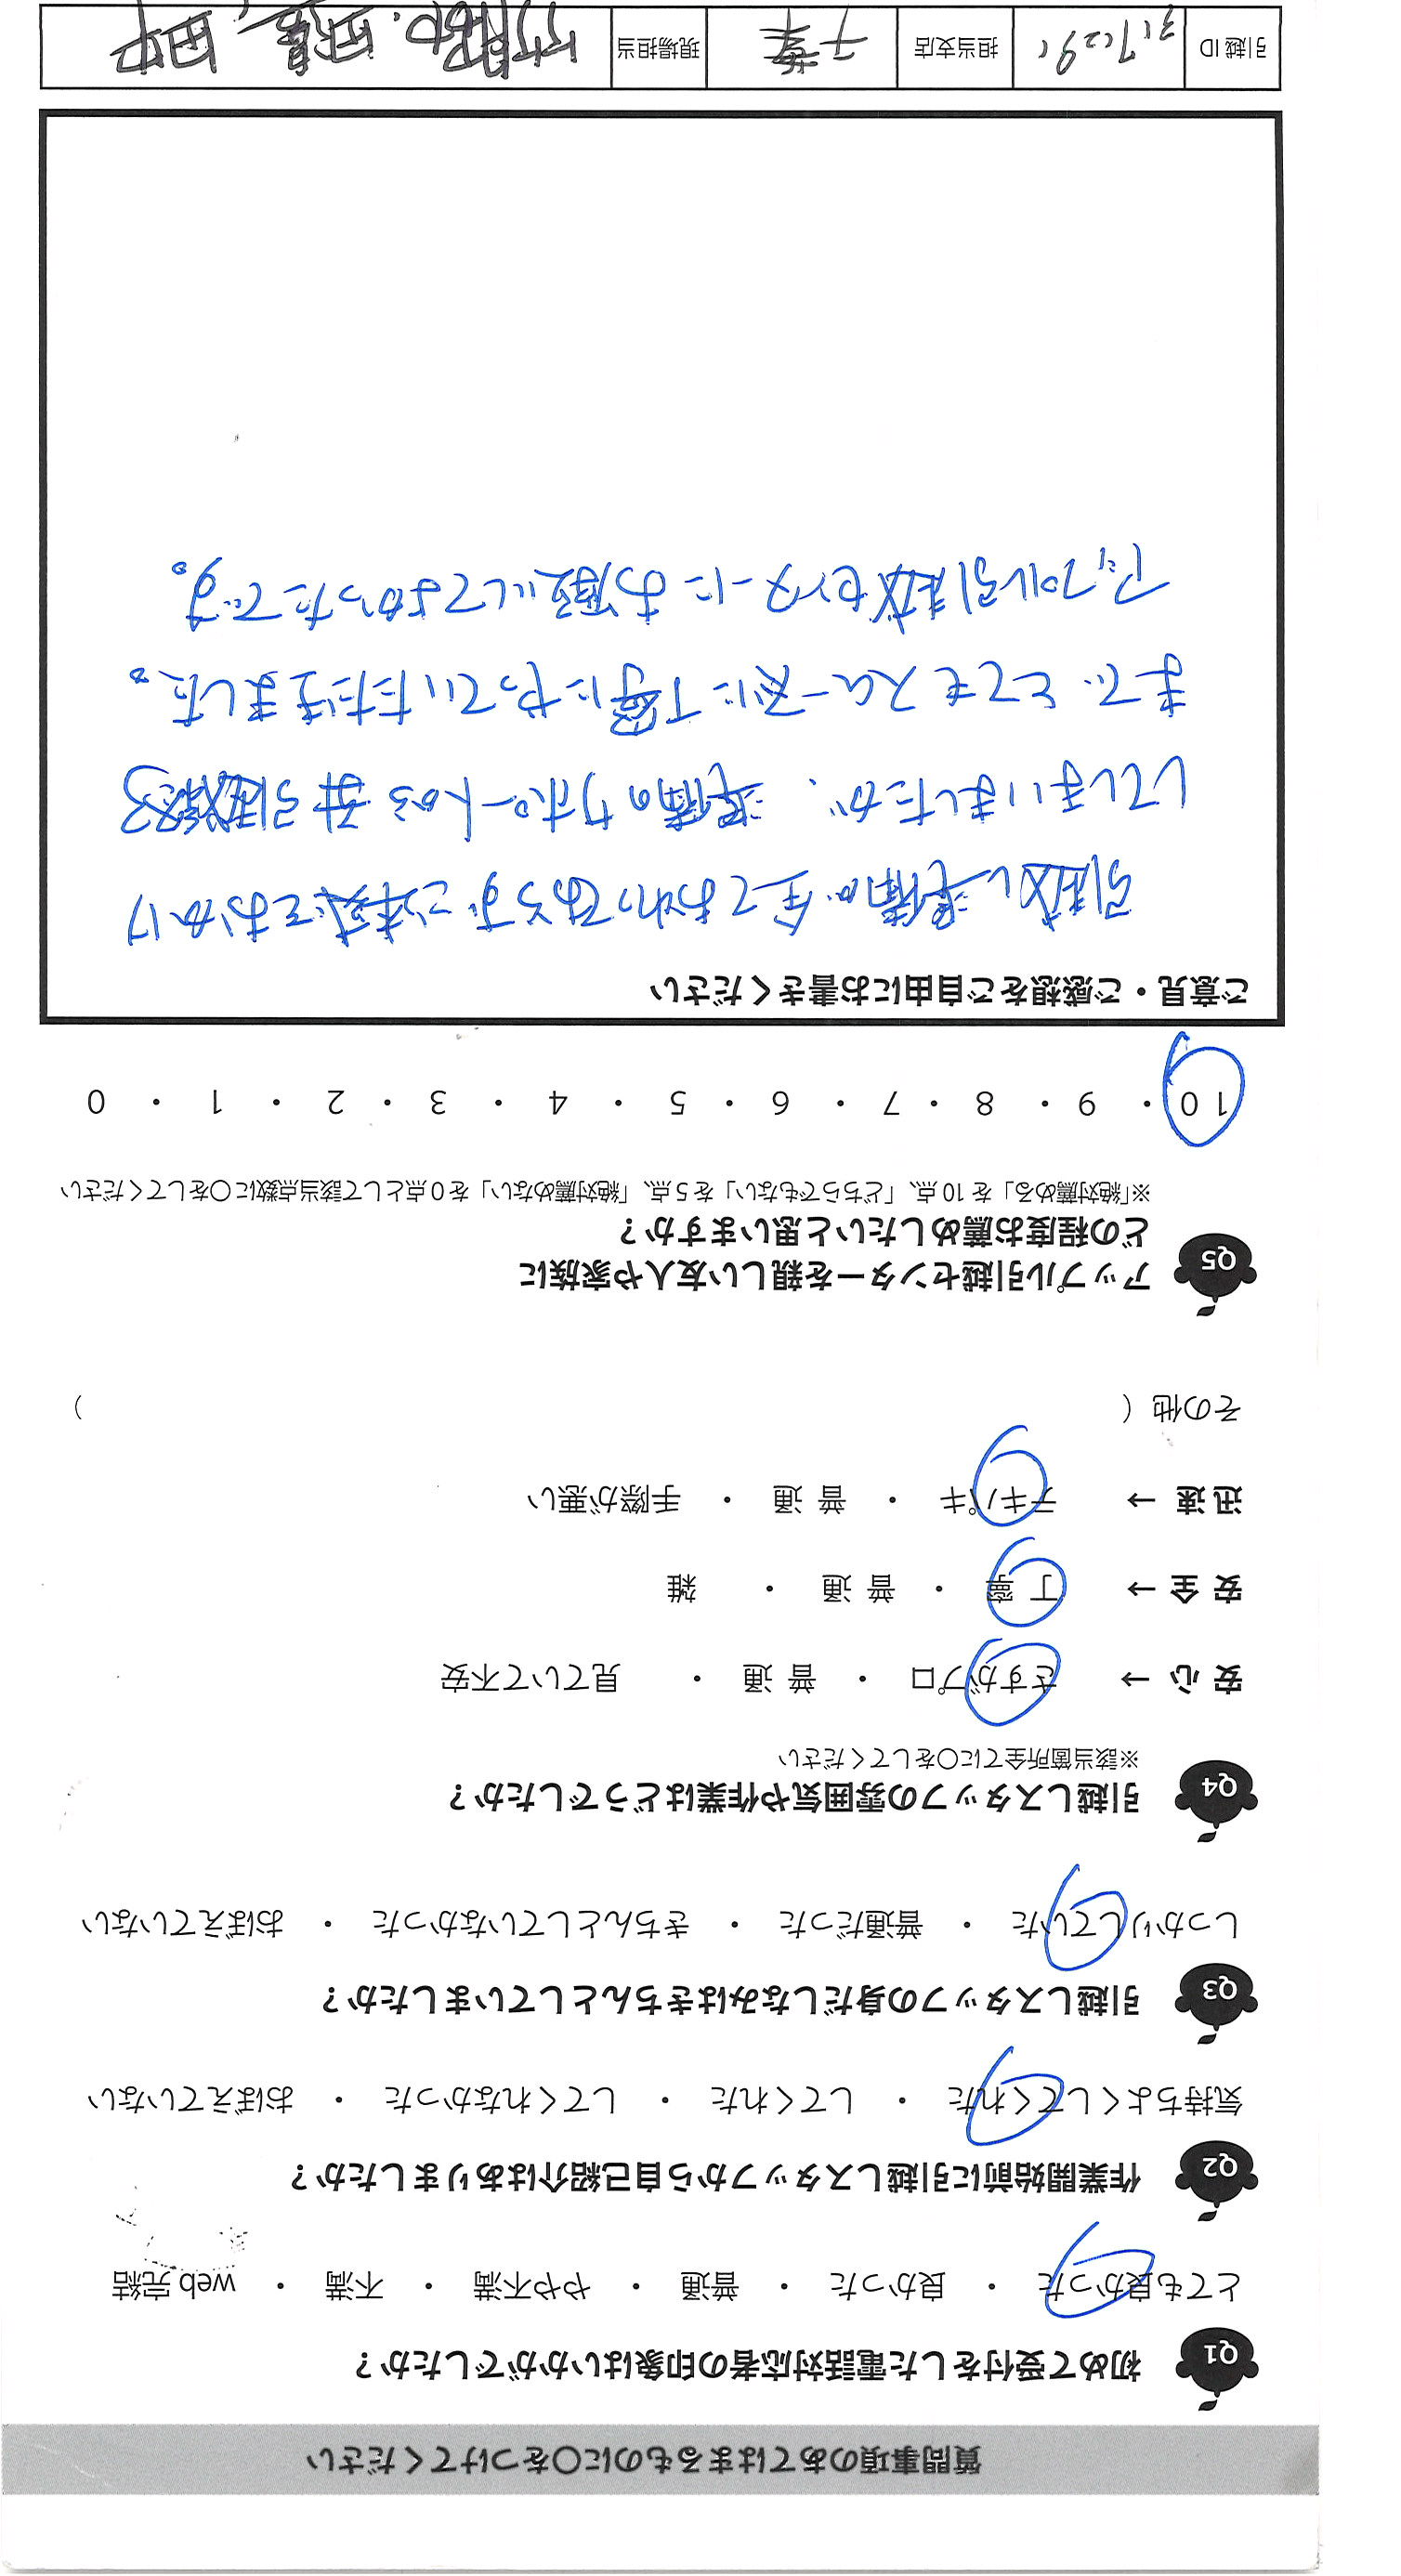 質問事項のあてはまるものに○をつけてください
Q1 初めて受付をした電話対応者の印象はいかがでしたか?
とても良かった ・ 良かった ・ 普通 ・ やや不満 ・ 不満 ・ web 完結
Q2 作業開始前に引越しスタッフから自己紹介はありましたか?
気持ちよくしてくれた ・ してくれた ・ してくれなかった ・ おぼえていない
Q3 引越しスタッフの身だしなみはきちんとしていましたか?
しっかりしていた ・ 普通だった ・ きちんとしていなかった ・ おぼえていない
Q4 引越しスタッフの雰囲気や作業はどうでしたか?
※該当箇所全てに○をしてください
安心→ さすがプロ ・ 普通 ・ 見ていて不安
安全→ 丁寧 ・ 普通 ・ 雑
迅速→ テキパキ ・ 普通 ・ 手際が悪い
その他 ( )
Q5 アップル引越センターを親しい友人や家族に
どの程度お薦めしたいと思いますか?
※「絶対薦める」を10点、「どちらでもない」を5点、「絶対薦めない」を0点として該当点数に○をしてください
10 ・ 9 ・ 8 ・ 7 ・ 6 ・ 5 ・ 4 ・ 3 ・ 2 ・ 1 ・ 0
ご意見・ご感想をご自由にお書きください
引越し準備が全ておわっておらずご迷惑をおかけ
してしまいましたが、準備のサポートから 引越
まで、とてもスムーズに丁寧にやっていただきました。
アップル引越センターにお願いしてよかったです。
引越ID 担当支店 千葉 現場担当 田中